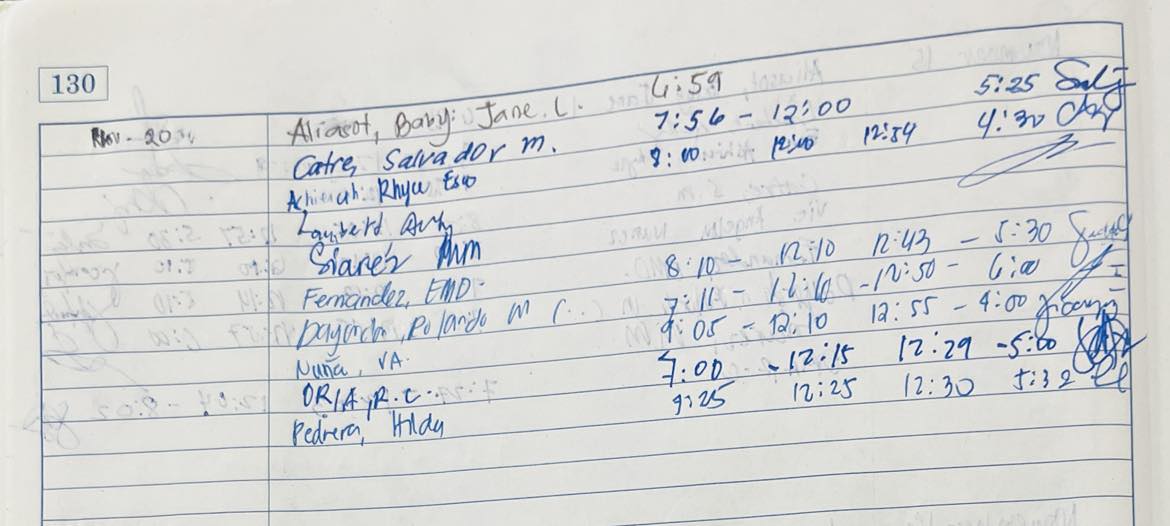 130
Nov. 20 Aliasot, Baby Jane L. 6:59
Catre, Salvador M. 7:56 - 12:00 5:25
Rhyu 8:00 12:00 12:54 4:30
Suarez
Fernandez, EMD 8:10 - 12:10 12:43 - 5:30
Rolando M 7:11 - 12:10 - 12:50 - 6:00
Nuña, VA. 9:05 - 12:10 12:55 - 4:00
ORIA, R.C. 7:00 - 12:15 12:29 - 5:00
Pedrera, Hilda 9:25 12:25 12:30 5:32